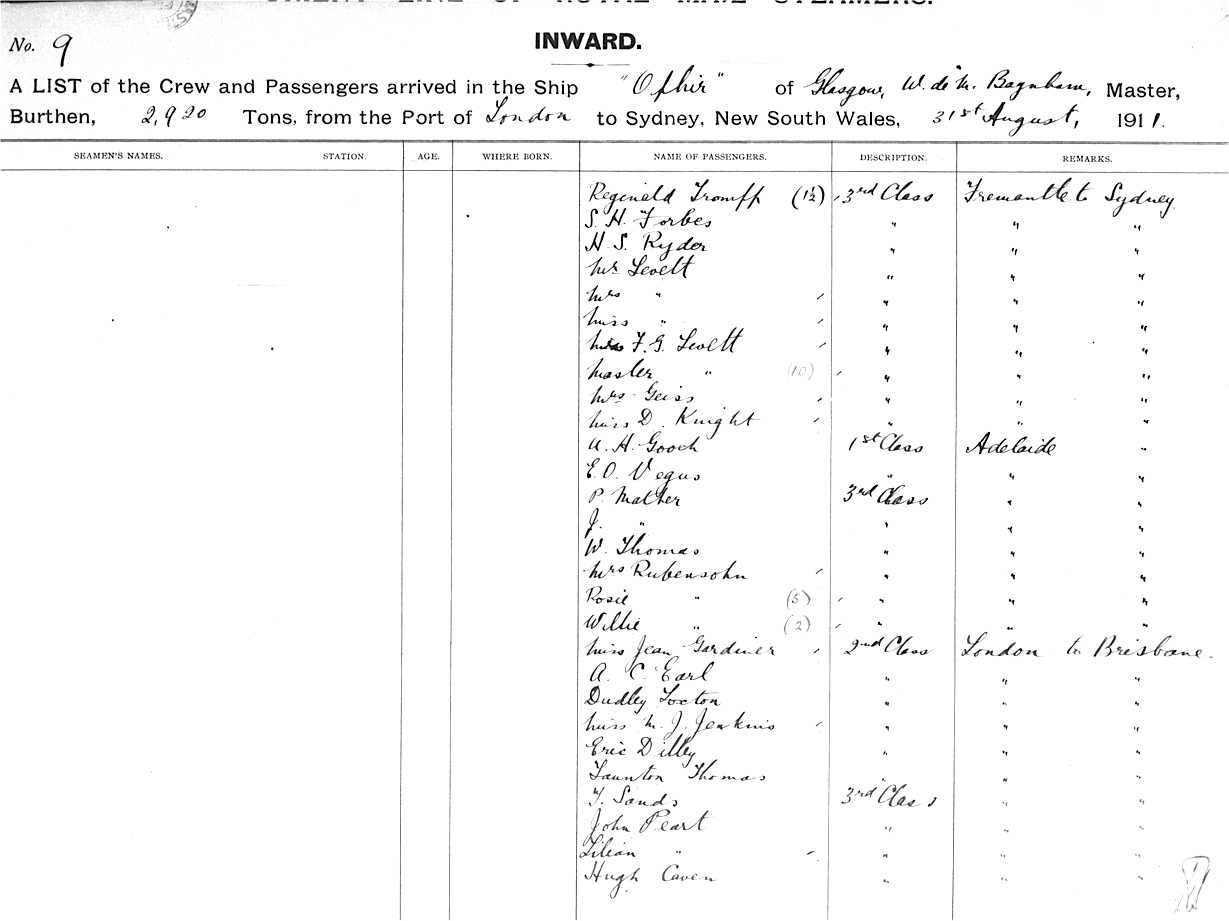 ORIENT LINE OF ROYAL MAIL STEAMERS.
No. 9
INWARD.
A LIST of the Crew and Passengers arrived in the Ship "Ophir" of Glasgow, W. de M. Baynham, Master,
Burthen, 2,920 Tons, from the Port of London to Sydney, New South Wales, 31st August, 1911.
SEAMEN'S NAMES. STATION. AGE. WHERE BORN. NAME OF PASSENGERS. DESCRIPTION. REMARKS.
Reginald Tromff (1½) 3rd Class Fremantle to Sydney
S. H. Forbes " " "
H. S. Ryder " " "
Mr Levett " " "
Mrs " " " "
Miss " " " "
F. G. Levett " " "
Master " (10) " " "
Mrs Geiss " " "
Miss D. Knight " " "
A. H. Gooch 1st Class Adelaide "
E. O. Vegus " " "
P. Mather 3rd Class " "
J. " " " "
W. Thomas " " "
Mrs Rubensohn " " "
Rosie " (5) " " "
Willie " (2) " " "
Miss Jean Gardiner 2nd Class London to Brisbane.
A. C. Earl " " "
Dudley Loxton " " "
Miss M. J. Jenkins " " "
Eric Dilley " " "
Taunton Thomas " " "
T. Sands 3rd Class " "
John Peart " " "
Lilian " " " "
Hugh Caven " " "